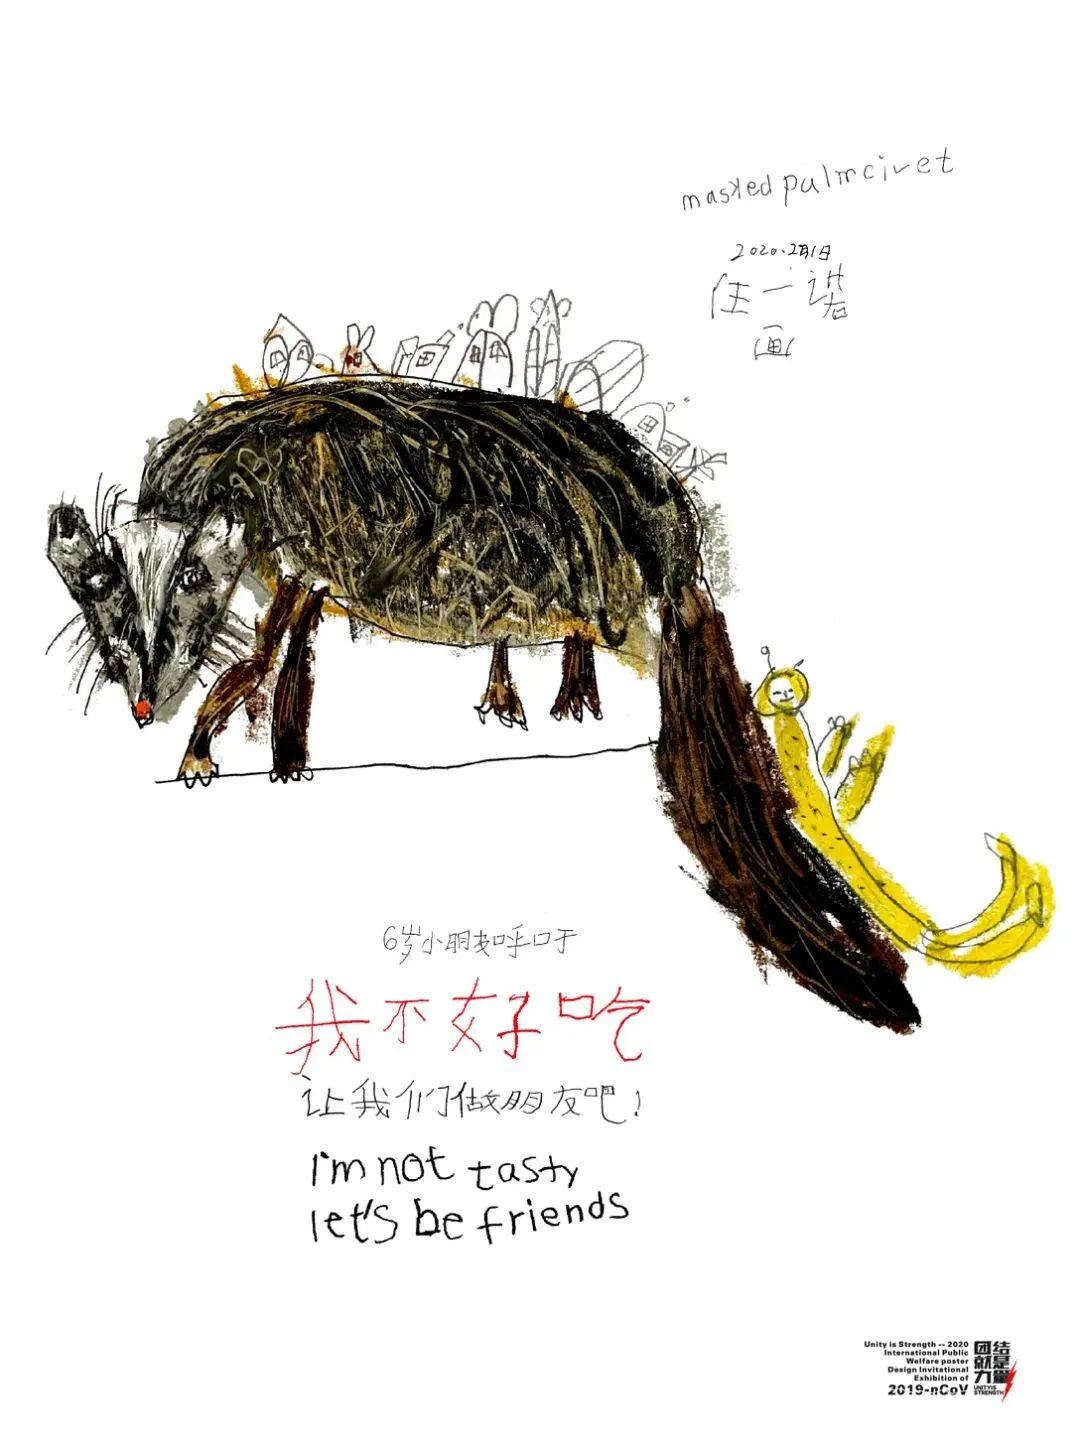 masked palmcivet
2020.2月1日
任一诺
画
6岁小朋友呼吁
我不好吃
让我们做朋友吧!
I'm not tasty
let's be friends
Unity is Strength -- 2020
International Public
Welfare poster
Design Invitational
Exhibition of
2019-nCoV
团结
就是
力量
UNITY IS
STRENGTH